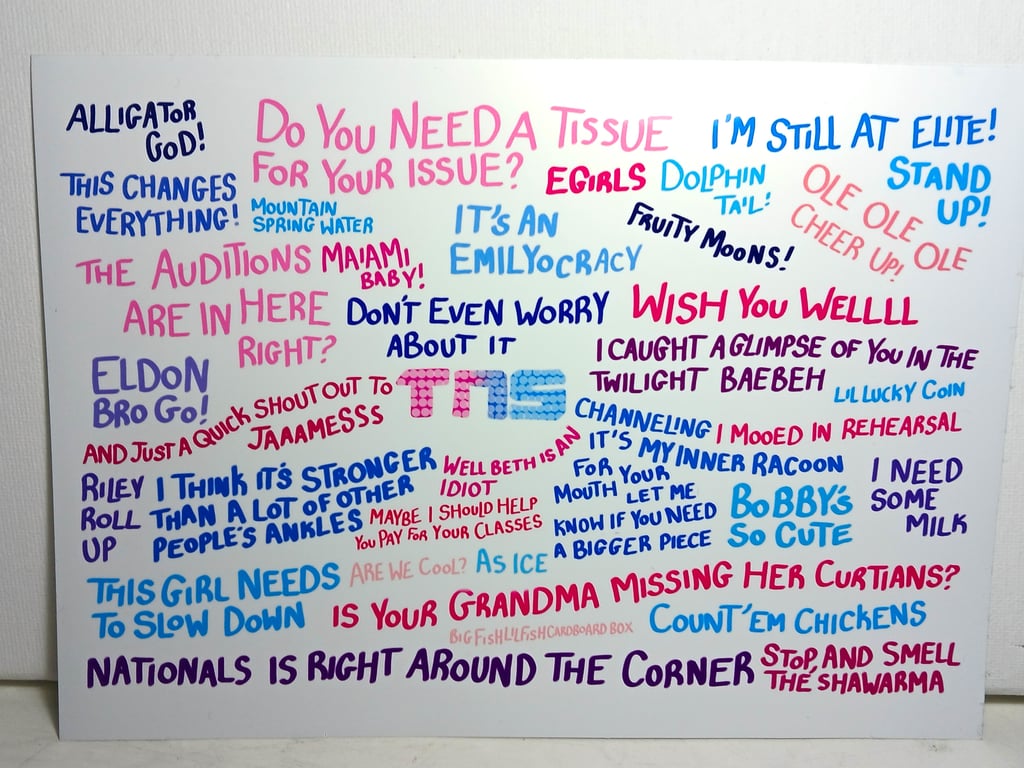 ALLIGATOR GOD!
DO YOU NEED A TISSUE
FOR YOUR ISSUE?
I'M STILL AT ELITE!
THIS CHANGES
EVERYTHING!
MOUNTAIN
SPRING WATER
EGIRLS
DOLPHIN
TAIL!
OLE OLE OLE OLE
CHEER UP!
STAND
UP!
IT'S AN
EMILYOCRACY
FRUITY MOONS!
THE AUDITIONS
ARE IN HERE
RIGHT?
MAIAMI
BABY!
DON'T EVEN WORRY
ABOUT IT
WISH YOU WELLLL
ELDON
BRO GO!
I CAUGHT A GLIMPSE OF YOU IN THE
TWILIGHT BAEBEH
LIL LUCKY COIN
AND JUST A QUICK SHOUT OUT TO
JAAAMESSS
TNS
CHANNELING
IT'S MY INNER RACOON
I MOOED IN REHEARSAL
RILEY
ROLL
UP
I THINK IT'S STRONGER
THAN A LOT OF OTHER
PEOPLE'S ANKLES
WELL BETH IS AN
IDIOT
MAYBE I SHOULD HELP
YOU PAY FOR YOUR CLASSES
FOR YOUR
MOUTH LET ME
KNOW IF YOU NEED
A BIGGER PIECE
BOBBY'S
SO CUTE
I NEED
SOME
MILK
THIS GIRL NEEDS
TO SLOW DOWN
ARE WE COOL?
AS ICE
IS YOUR GRANDMA MISSING HER CURTIANS?
BIG FISH LIL FISH CARDBOARD BOX
COUNT 'EM CHICKENS
NATIONALS IS RIGHT AROUND THE CORNER
STOP, AND SMELL
THE SHAWARMA